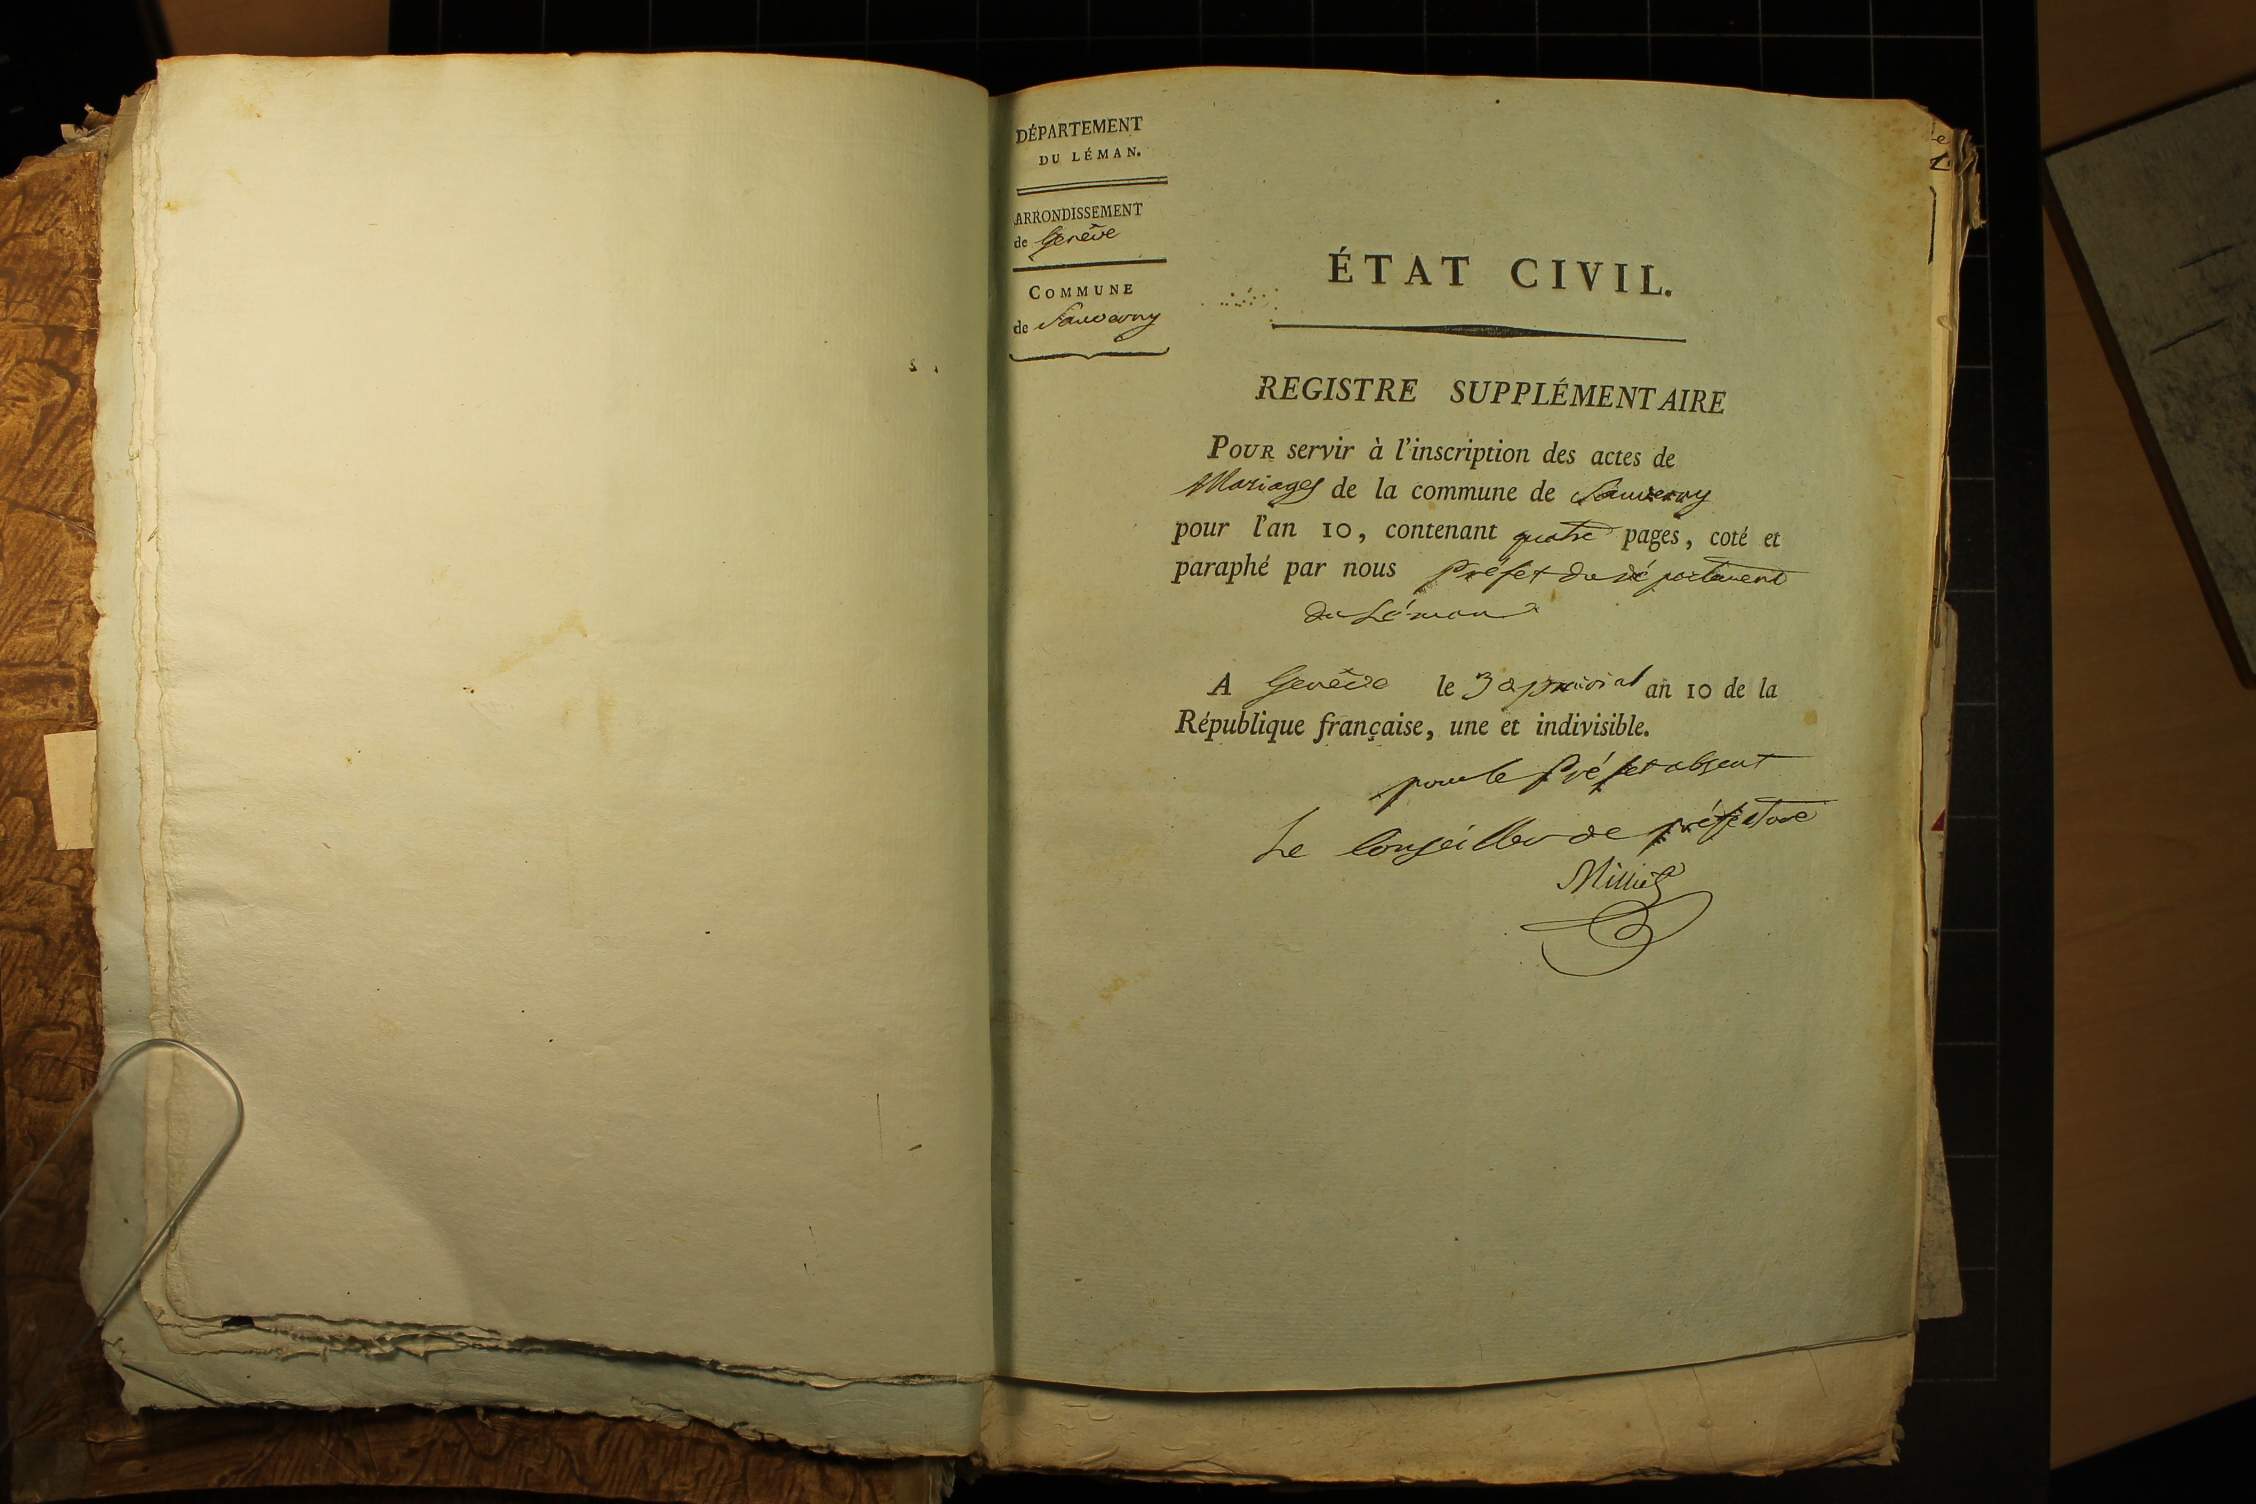 DÉPARTEMENT
DU LÉMAN.
ARRONDISSEMENT
de Genêve
COMMUNE
de Sauverny
ÉTAT CIVIL.
REGISTRE SUPPLÉMENTAIRE
POUR servir à l'inscription des actes de
Mariages de la commune de Sauverny
pour l'an 10, contenant quatre pages, coté et
paraphé par nous Préfet du département
du Léman
A Genêve le 3 prairial an 10 de la
République française, une et indivisible.
pour le Préfet absent
Le Conseiller de préfecture